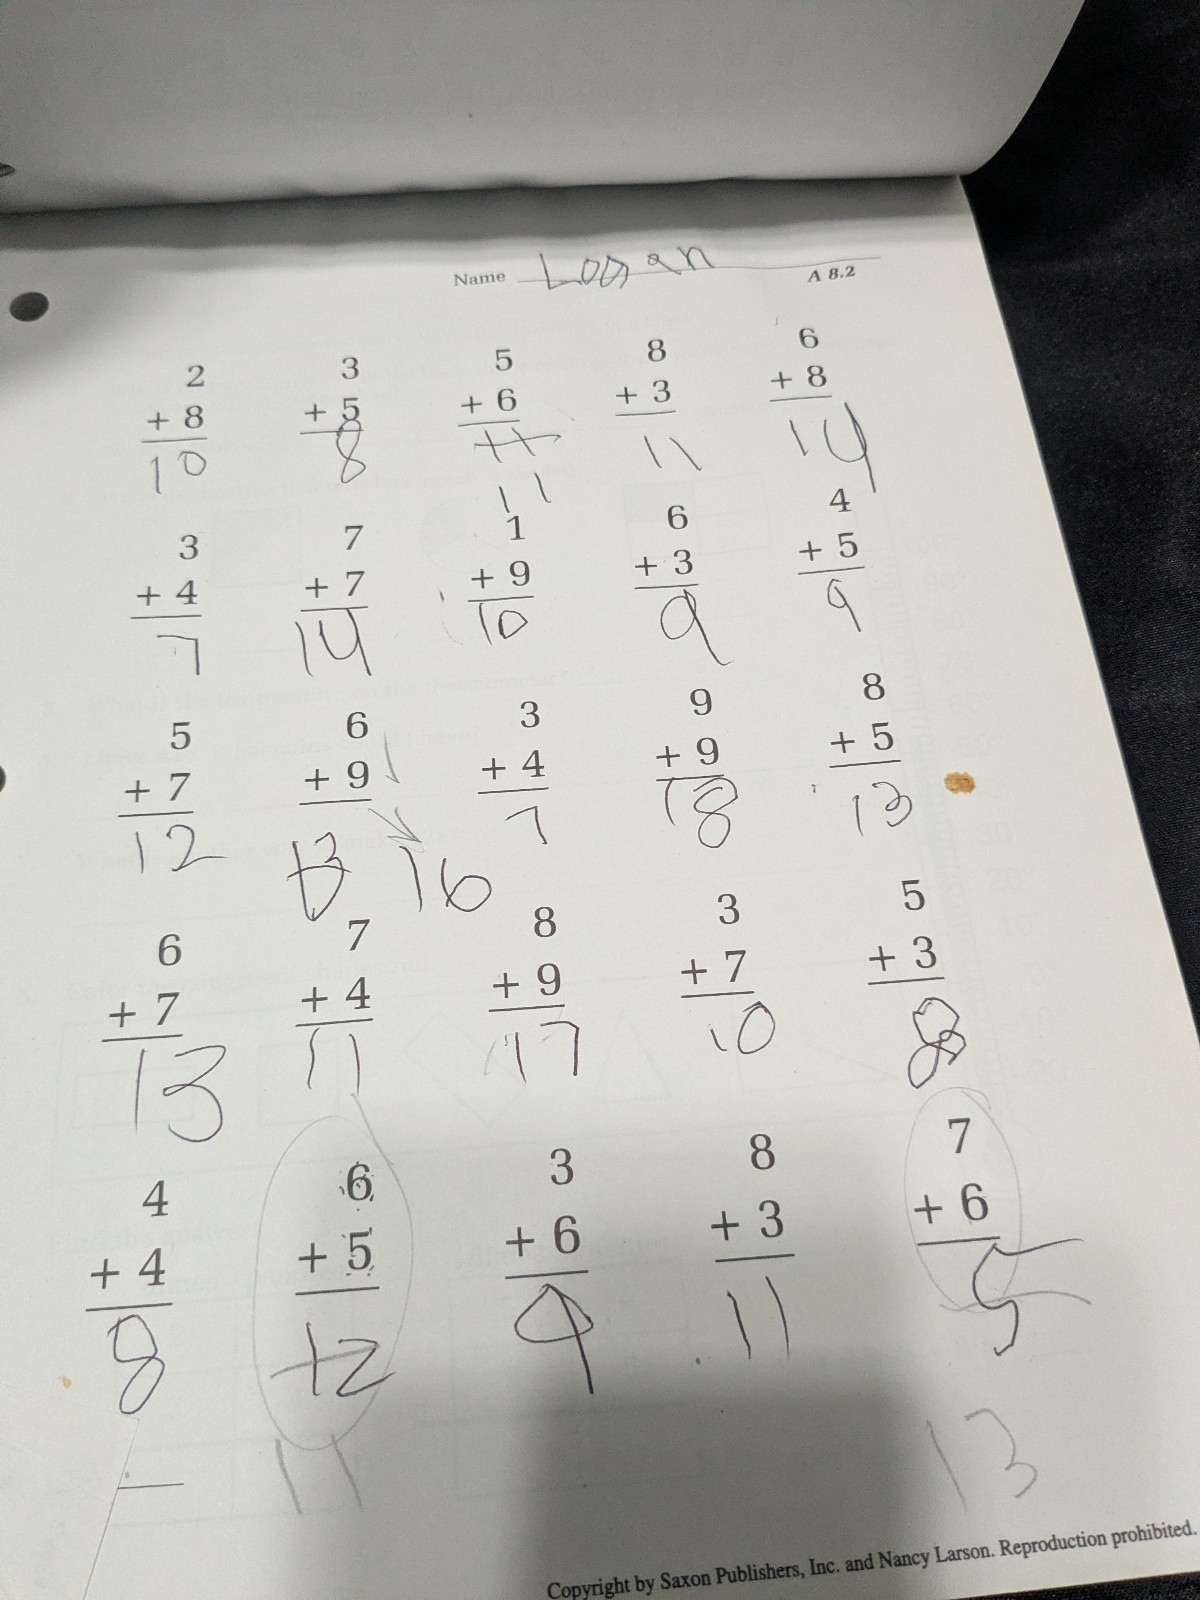 Name Logan A 8.2
2 3 5 8 6
+ 8 + 5 + 6 + 3 + 8
10 8 11 11 14
11
3 7 1 6 4
+ 4 + 7 + 9 + 3 + 5
7 14 10 9 9
5 6 3 9 8
+ 7 + 9 + 4 + 9 + 5
12 13 16 7 18 13
6 7 8 3 5
+ 7 + 4 + 9 + 7 + 3
13 11 17 10 8
4 6 3 8 7
+ 4 + 5 + 6 + 3 + 6
8 12 9 11 5
11 13
Copyright by Saxon Publishers, Inc. and Nancy Larson. Reproduction prohibited.